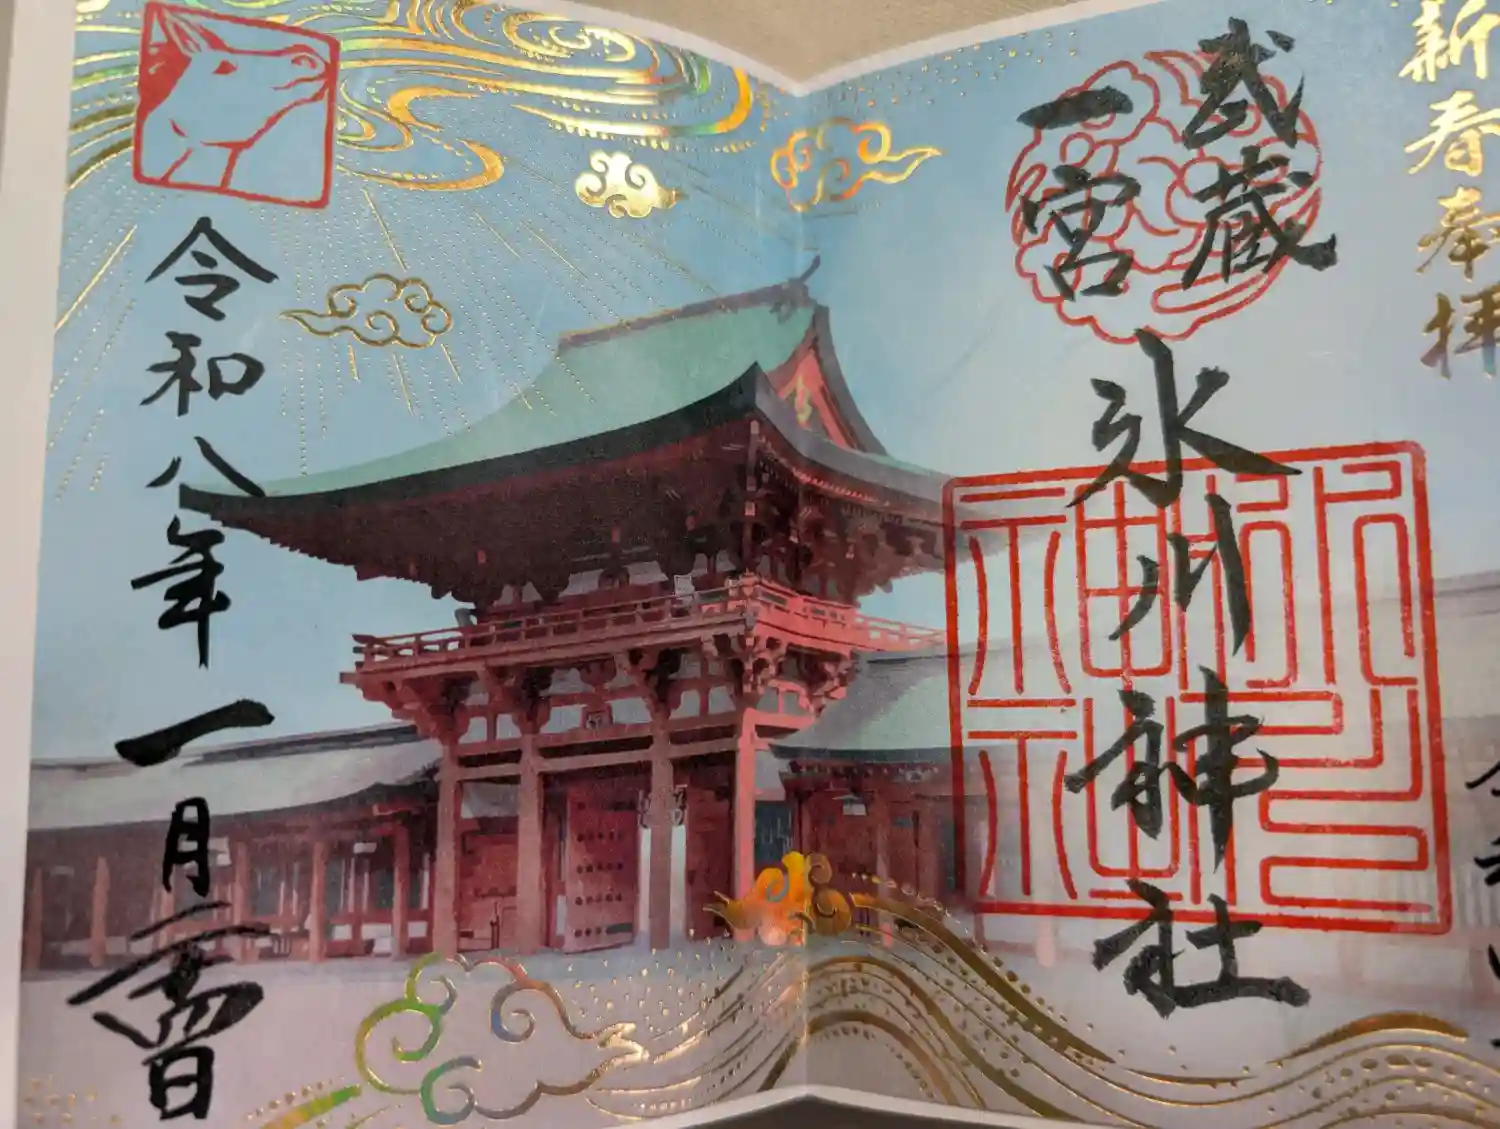 新春奉拝
武蔵
一宮
氷川神社
令和八年一月日